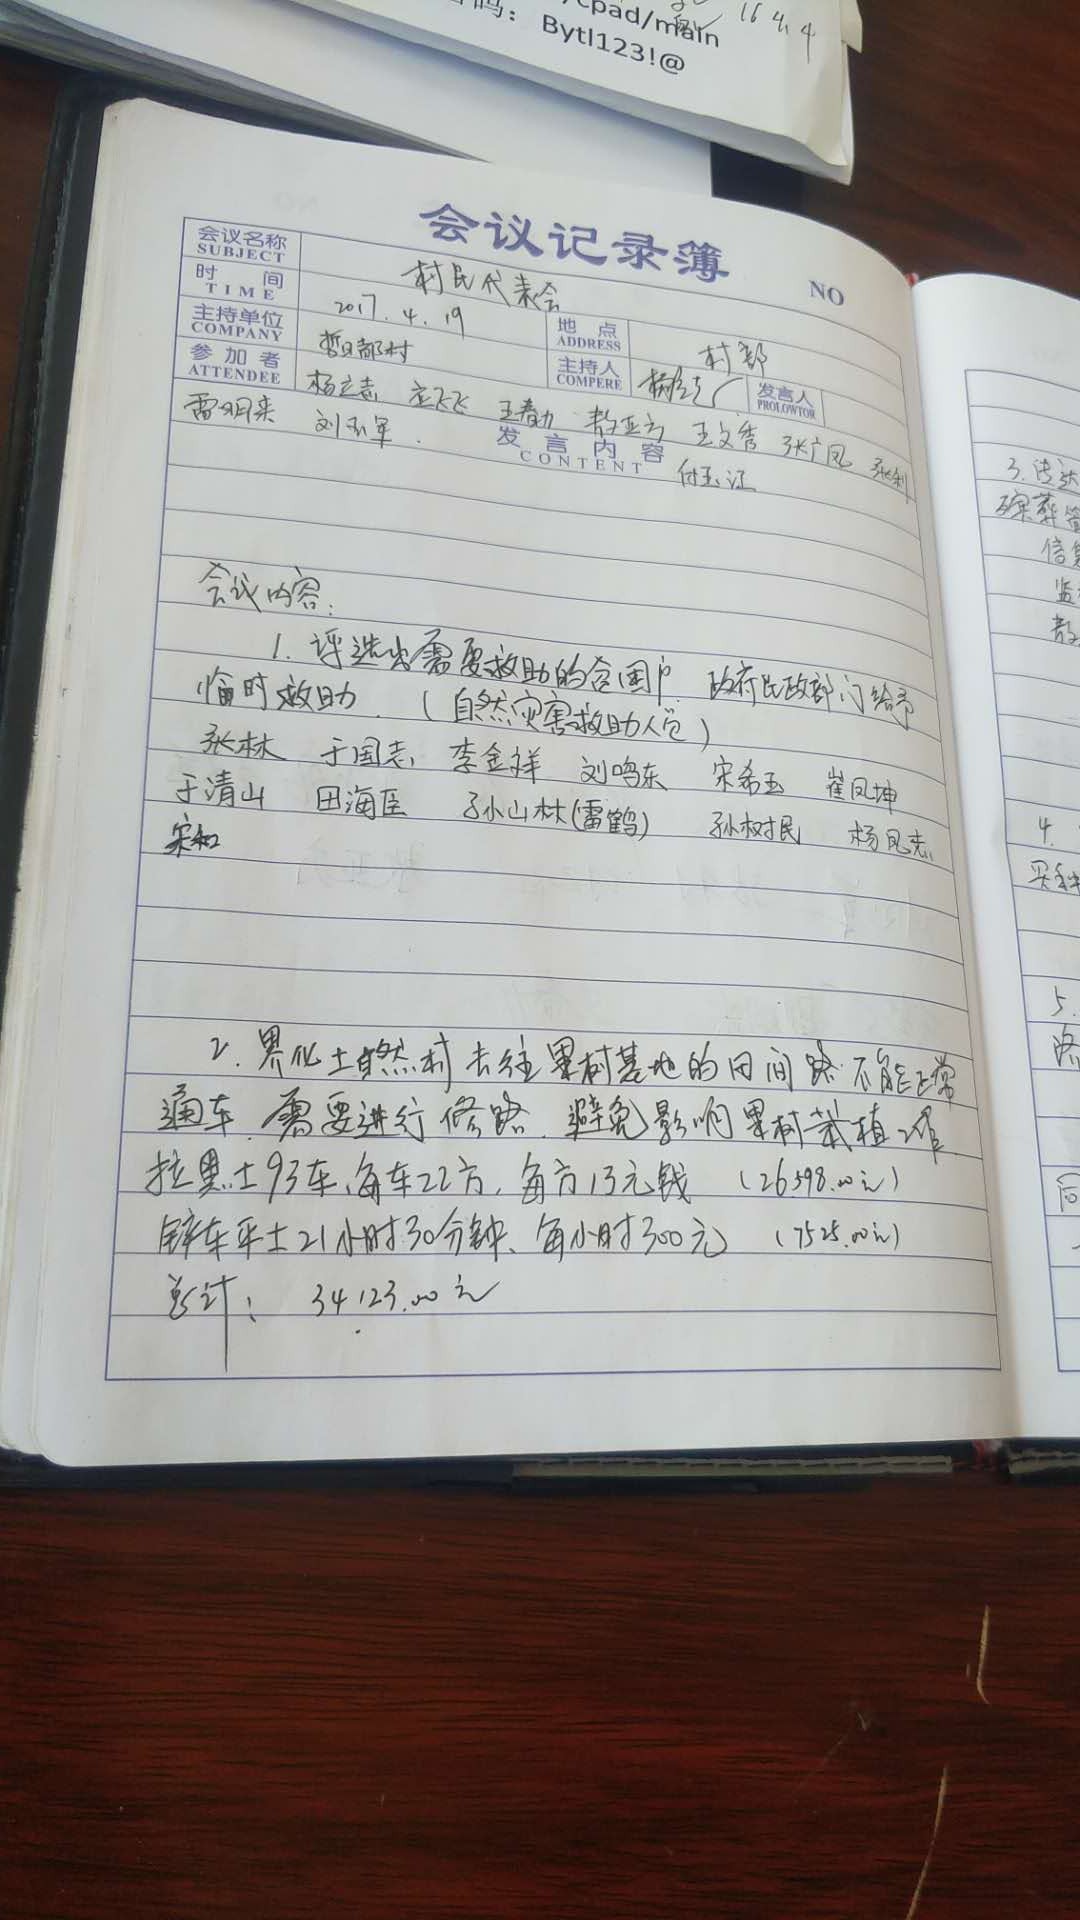 /cpad/main
16 4.4
码：Bytl123!@
会议记录簿
NO
会议名称 SUBJECT 村民代表会
时间 TIME 2017.4.19 地点 ADDRESS 村部
主持单位 COMPANY 哲日都村 主持人 COMPERE 发言人 PROLOWTOR
参加者 ATTENDEE 杨立志 王春力 王文秀 张广凤 张利
雷明来 刘玉军 付玉江
发言内容 CONTENT
会议内容：
1. 评选出需要救助的贫困户 政府民政部门给予
临时救助 （自然灾害救助人员）
张林 于国志 李金祥 刘鸣东 宋希玉 崔凤坤
于清山 田海臣 孙山林(雷鹤) 孙树民 杨凤志
宋和
2. 界化土自然村去往果树基地的田间路不能正常
通车，需要进行修路，避免影响果树栽植工作
拉黑土93车，每车22方，每方13元钱 （26598.00元）
铲车平土21小时30分钟、每小时300元 （7525.00元）
总计： 34123.00元
3. 传达
殡葬管
4.
5.
路
同